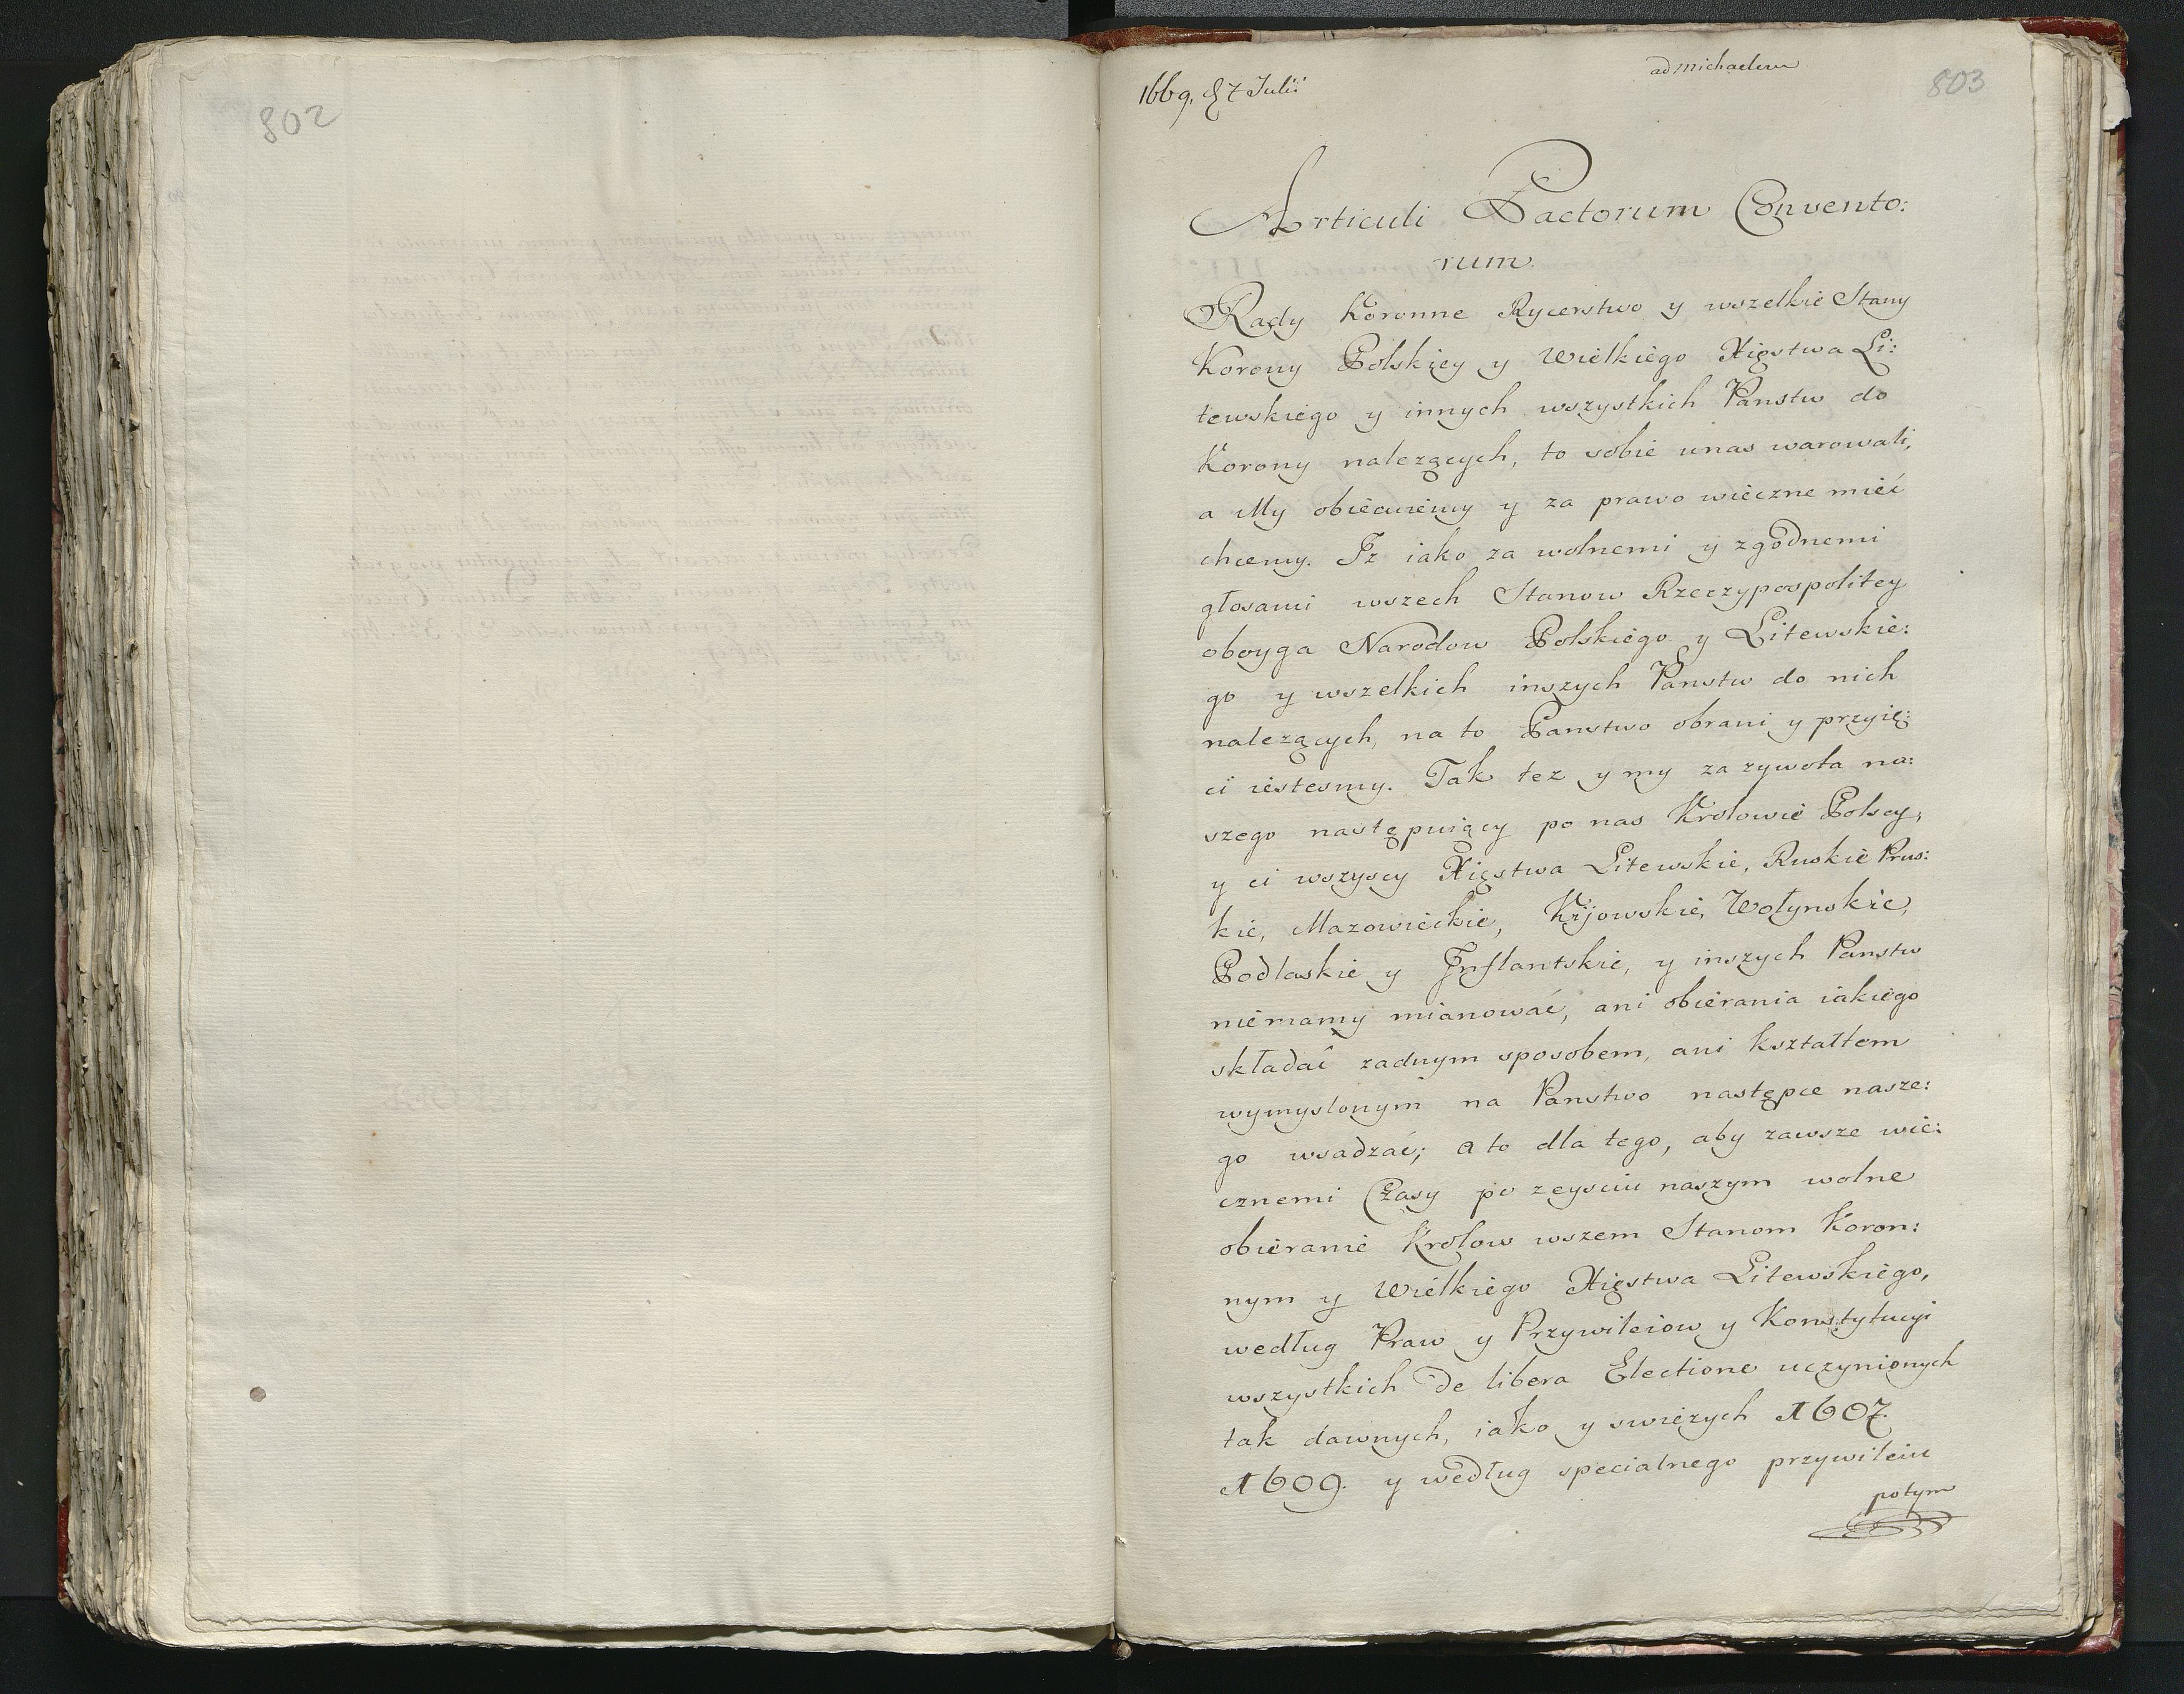 802
ad michaelem
803
1669, d 7 Julii
Articuli Pactorum Convento:
rum.
Rady Koronne Rycerstwo y wszelkie Stany
Korony Polskiey y Wielkiego Xięstwa Li:
tewskiego y innych wszystkich Panstw do
Korony nalezących, to sobie unas warowali,
a My obiecuiemy y za prawo wieczne mieć
chcemy. Iz iako za wolnemi y zgodnemi
głosami wszech Stanow Rzeczypospolitey
oboyga Narodow Polskiego y Litewskie:
go y wszelkich inszych Panstw do nich
nalezących, na to Panstwo obrani y przyię:
ci iestesmy. Tak tez y my za zywota na:
szego następuiący po nas Krolowie Polscy,
y ci wszyscy Xięstwa Litewskie, Ruskie Prus:
kie, Mazowieckie, Kijowskie, Wołynskie,
Podlaskie y Inflantskie, y inszych Panstw
niemamy mianować, ani obierania iakiego
składać zadnym sposobem, ani kształtem
wymyslonym na Panstwo następce nasze:
go wsadzać; a to dla tego, aby zawsze wie:
cznemi Czasy po zeysciu naszym wolne
obieranie Krolow wszem Stanom Koron:
nym y Wielkiego Xięstwa Litewskiego,
według Praw y Przywileiow y Konstytucyi
wszystkich de libera Electione uczynionych
tak dawnych, iako y swiezych 1607.
1609. y według specialnego przywileiu
potym